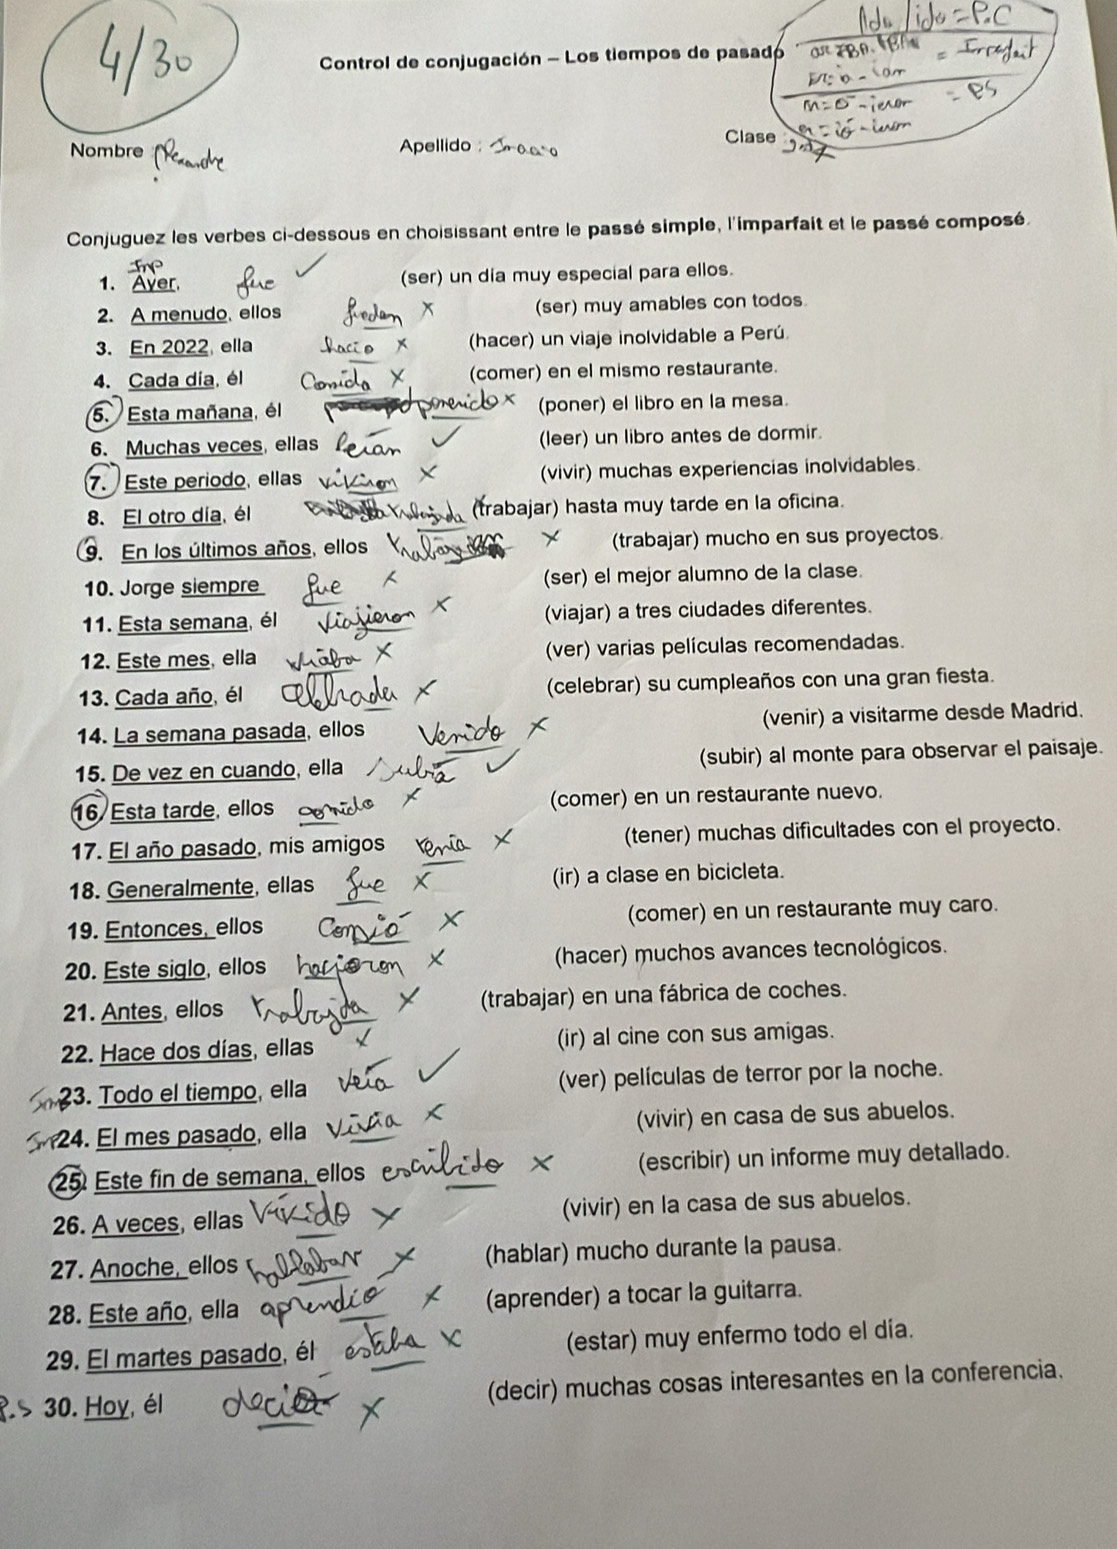 4/30
Ado/ido = P.C
Control de conjugación – Los tiempos de pasado
= Imparfait
= PS
Nombre
Apellido :
Clase
Conjuguez les verbes ci-dessous en choisissant entre le passé simple, l'imparfait et le passé composé.
Imp
1. Ayer, fue ✓ (ser) un día muy especial para ellos.
2. A menudo, ellos x (ser) muy amables con todos.
3. En 2022, ella hacío x (hacer) un viaje inolvidable a Perú.
4. Cada día, él Comida x (comer) en el mismo restaurante.
5. Esta mañana, él ponerido x (poner) el libro en la mesa.
6. Muchas veces, ellas leían ✓ (leer) un libro antes de dormir.
7. Este periodo, ellas x (vivir) muchas experiencias inolvidables.
8. El otro día, él trabajada (trabajar) hasta muy tarde en la oficina.
9. En los últimos años, ellos x (trabajar) mucho en sus proyectos.
10. Jorge siempre fue x (ser) el mejor alumno de la clase.
11. Esta semana, él viajieron x (viajar) a tres ciudades diferentes.
12. Este mes, ella x (ver) varias películas recomendadas.
13. Cada año, él celbrada x (celebrar) su cumpleaños con una gran fiesta.
14. La semana pasada, ellos Venido x (venir) a visitarme desde Madrid.
15. De vez en cuando, ella Subía ✓ (subir) al monte para observar el paisaje.
16. Esta tarde, ellos comido x (comer) en un restaurante nuevo.
17. El año pasado, mis amigos x (tener) muchas dificultades con el proyecto.
18. Generalmente, ellas fue x (ir) a clase en bicicleta.
19. Entonces, ellos Comió x (comer) en un restaurante muy caro.
20. Este siglo, ellos hacieron x (hacer) muchos avances tecnológicos.
21. Antes, ellos trabajda x (trabajar) en una fábrica de coches.
22. Hace dos días, ellas x (ir) al cine con sus amigas.
23. Todo el tiempo, ella veía ✓ (ver) películas de terror por la noche.
24. El mes pasado, ella vivía x (vivir) en casa de sus abuelos.
25. Este fin de semana, ellos escribido x (escribir) un informe muy detallado.
26. A veces, ellas Vivido x (vivir) en la casa de sus abuelos.
27. Anoche, ellos hallabar x (hablar) mucho durante la pausa.
28. Este año, ella aprendió x (aprender) a tocar la guitarra.
29. El martes pasado, él estaba x (estar) muy enfermo todo el día.
P.S 30. Hoy, él x (decir) muchas cosas interesantes en la conferencia.